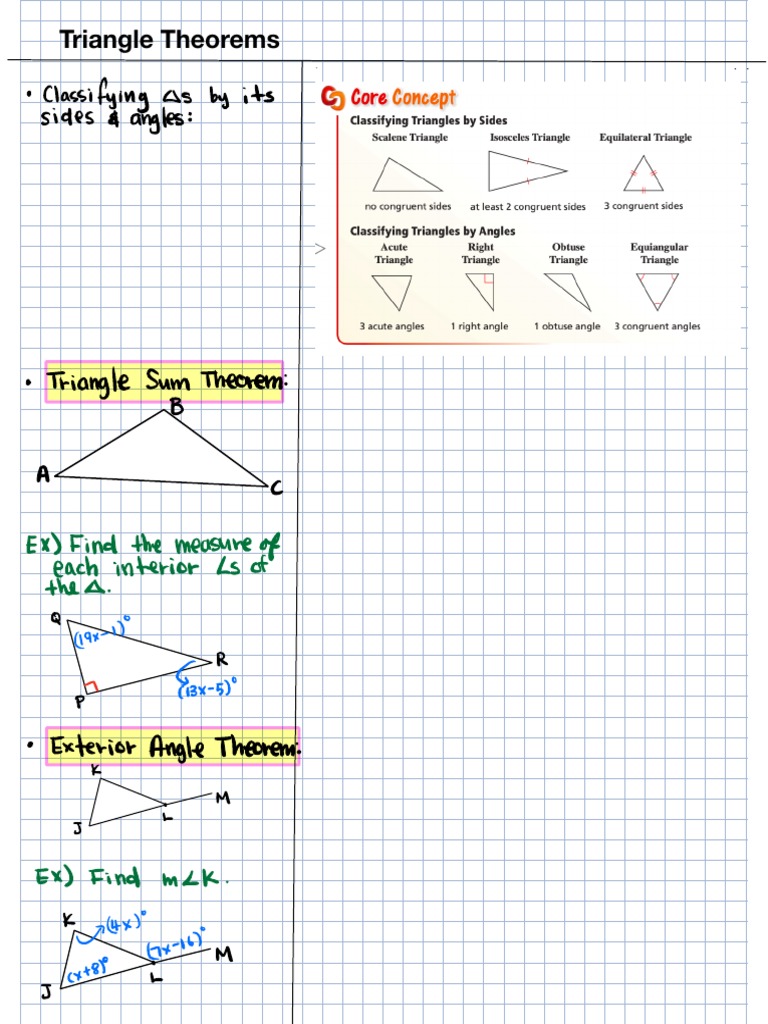 Triangle Theorems
• Classifying △s by its
sides & angles:
Core Concept
Classifying Triangles by Sides
Scalene Triangle Isosceles Triangle Equilateral Triangle
no congruent sides at least 2 congruent sides 3 congruent sides
Classifying Triangles by Angles
Acute Triangle Right Triangle Obtuse Triangle Equiangular Triangle
3 acute angles 1 right angle 1 obtuse angle 3 congruent angles
• Triangle Sum Theorem:
B
A
C
EX) Find the measure of
each interior ∠s of
the △.
Q
(19x-1)°
R
(13x-5)°
P
• Exterior Angle Theorem:
K
M
L
J
EX) Find m∠K.
K
(4x)°
(7x-16)°
M
(x+8)°
L
J